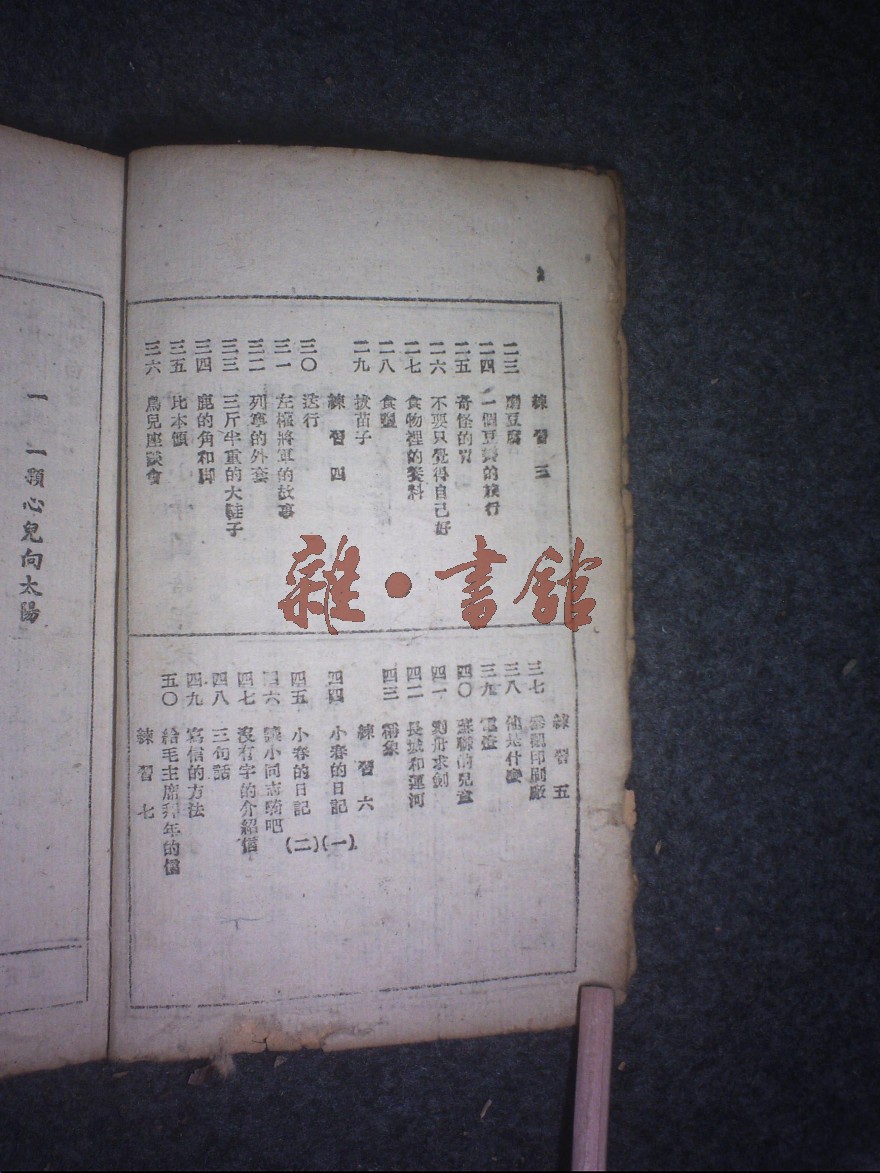 練習三
二三 磨豆腐
二四 一個豆 的旅行
二五 奇怪的胃
二六 不要只覺得自己好
二七 食物裡的養料
二八 食鹽
二九 拔苗子
練習四
三〇 送行
三一 左權將軍的故事
三二 列寧的外套
三三 三斤半重的大鞋子
三四 鹿的角和脚
三五 比本領
三六 鳥兒座談會
練習五
三七 參觀印刷廠
三八 他是什麼
三九 電燈
四〇 蘇聯的兒童
四一 刻舟求劍
四二 長城和運河
四三 稱象
練習六
四四 小春的日記(一)
四五 小春的日記(二)
四六 讓小同志騎吧
四七 沒有字的介紹信
四八 三句話
四九 寫信的方法
五〇 給毛主席拜年的信
練習七
一 一顆心兒向太陽
雜·書館